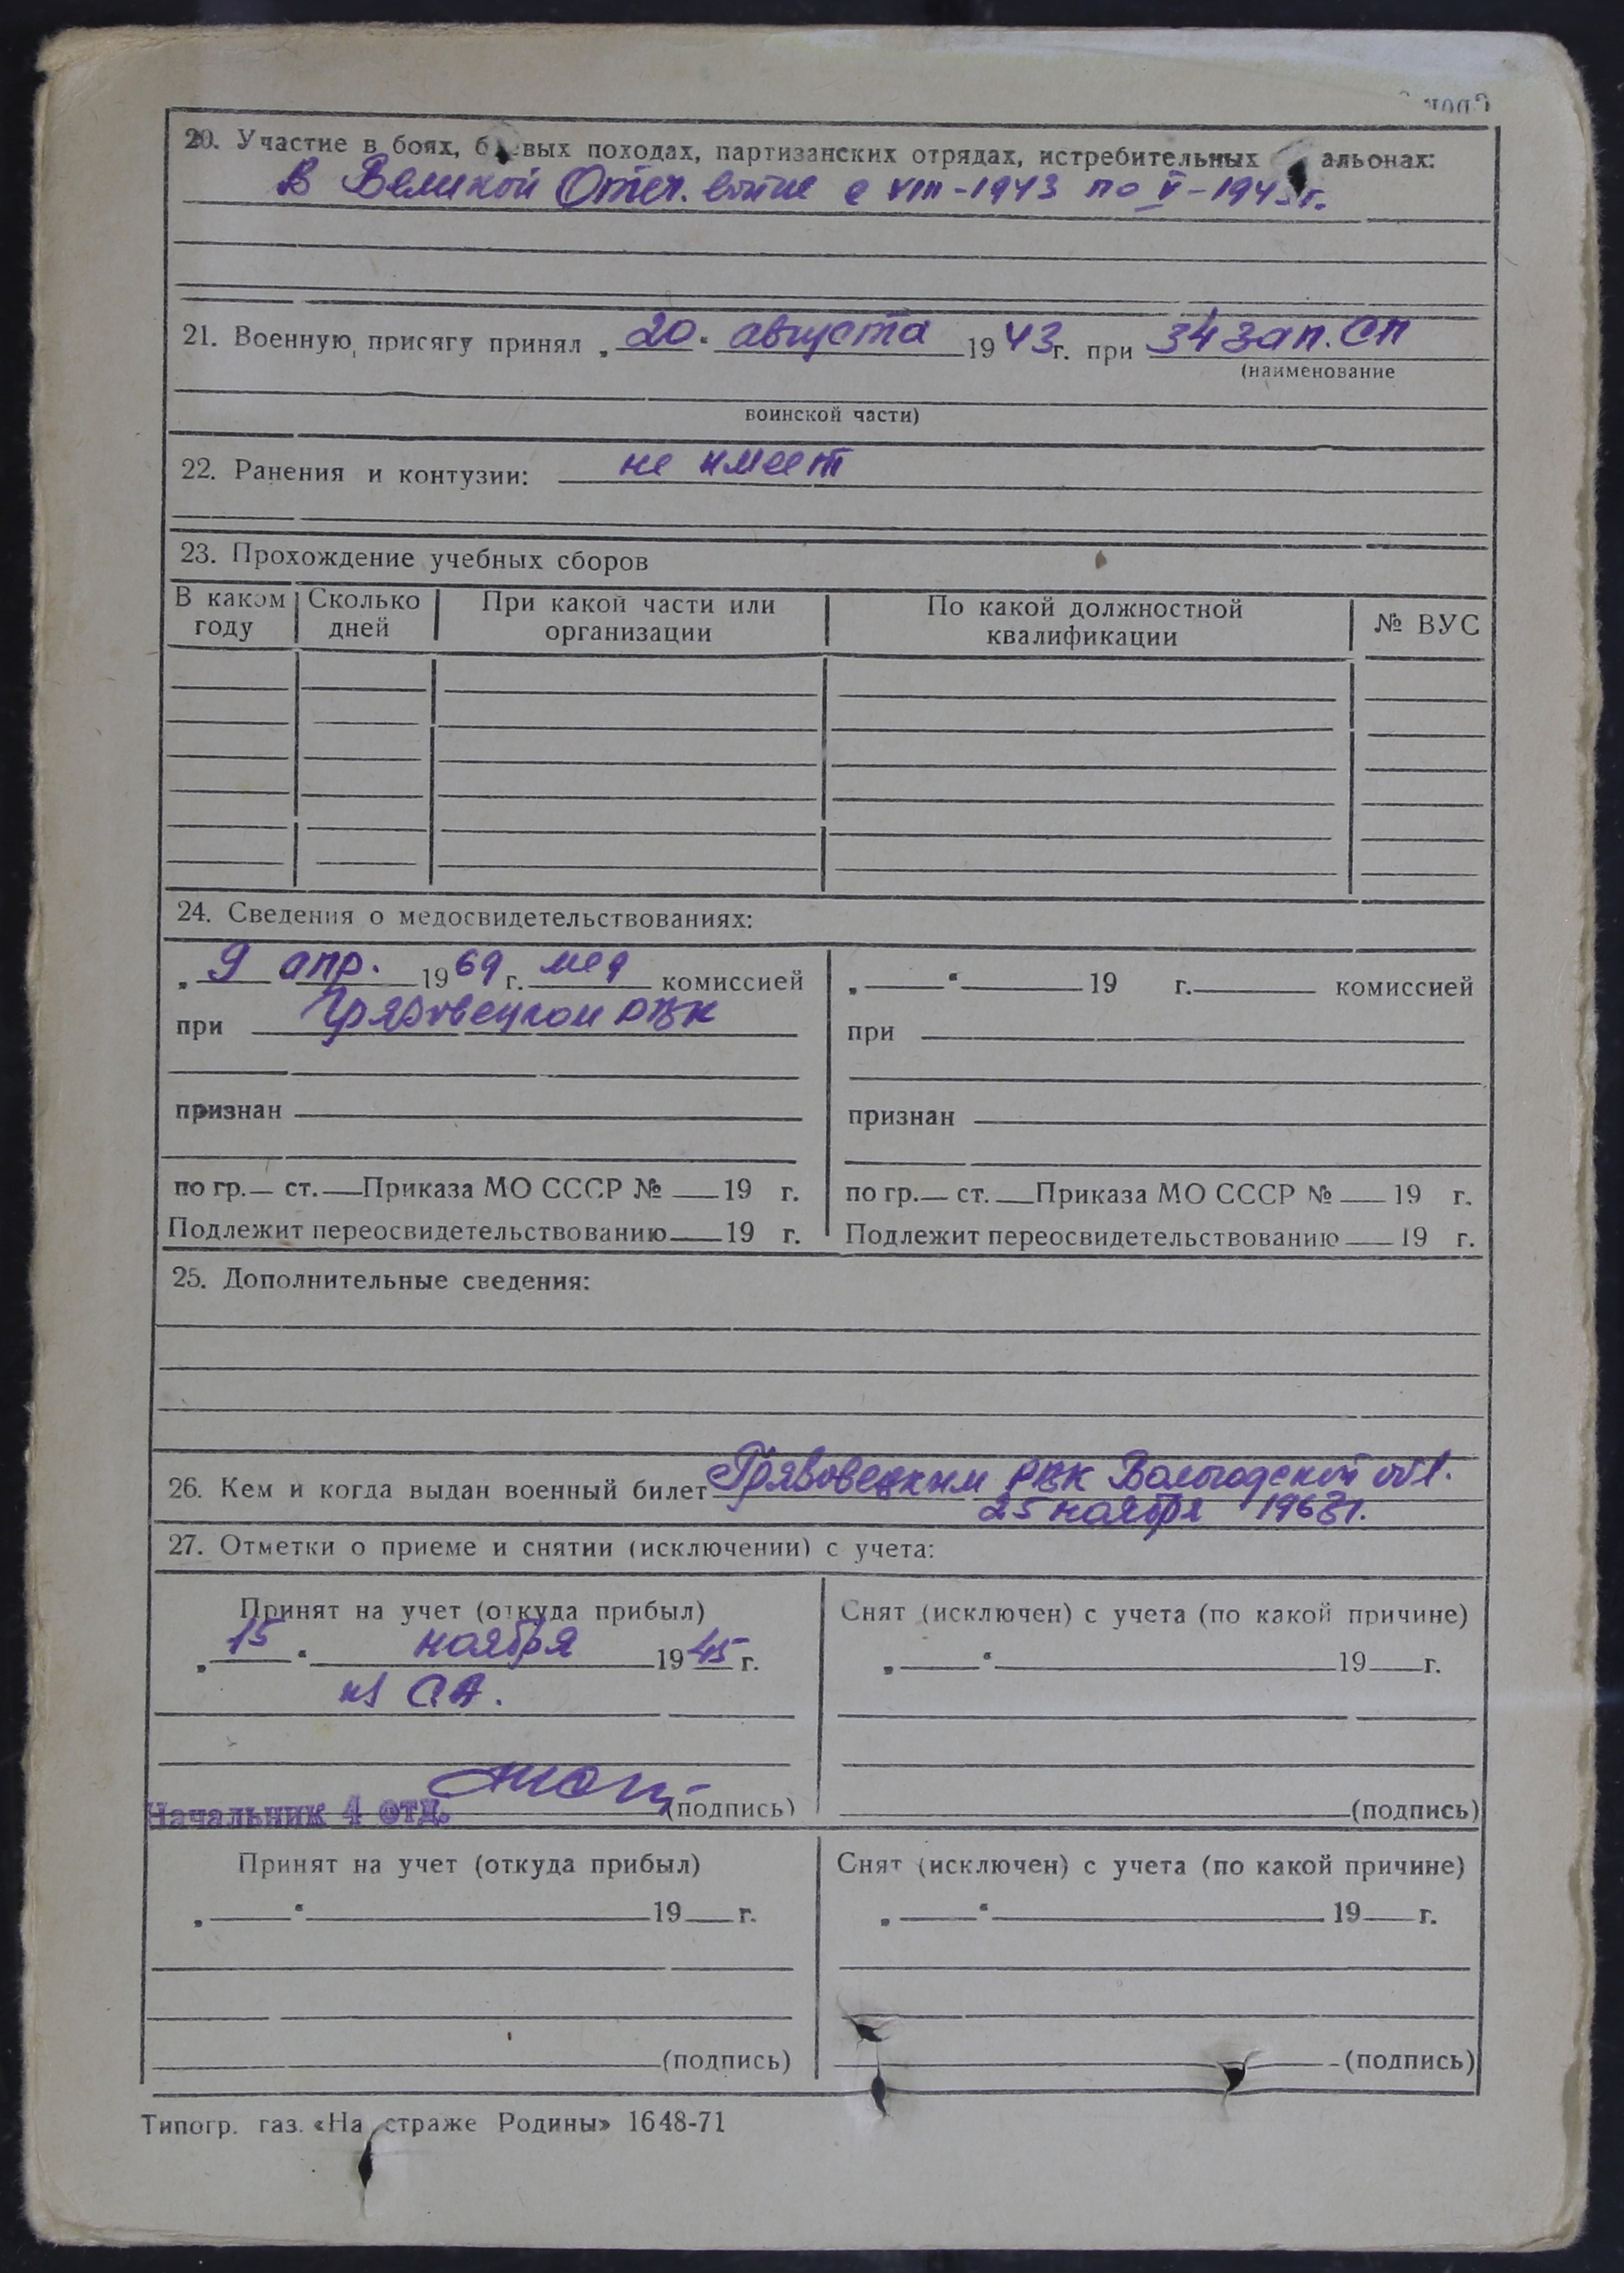 20. Участие в боях, б вых походах, партизанских отрядах, истребительных альонах:
В Великой Отеч. войне с VIII-1943 по V-1945г.
21. Военную присягу принял „20“ августа 1943г. при 34 зап. СП
(наименование
воинской части)
22. Ранения и контузии: не имеет
23. Прохождение учебных сборов
В каком году | Сколько дней | При какой части или организации | По какой должностной квалификации | № ВУС
24. Сведения о медосвидетельствованиях:
„9 апр. 1969 г. мед комиссией
при Грязовецком РВК
признан
по гр. ст. Приказа МО СССР № 19 г.
Подлежит переосвидетельствованию 19 г.
„ “ 19 г. комиссией
при
признан
по гр. ст. Приказа МО СССР № 19 г.
Подлежит переосвидетельствованию 19 г.
25. Дополнительные сведения:
26. Кем и когда выдан военный билет Грязовецким РВК Вологодской обл.
25 ноября 1963г.
27. Отметки о приеме и снятии (исключении) с учета:
Принят на учет (откуда прибыл)
„15“ ноября 1945 г.
из СА.
Начальник 4 отд. (подпись)
Снят (исключен) с учета (по какой причине)
„ “ 19 г.
(подпись)
Принят на учет (откуда прибыл)
„ “ 19 г.
(подпись)
Снят (исключен) с учета (по какой причине)
„ “ 19 г.
(подпись)
Типогр. газ. «На страже Родины» 1648-71